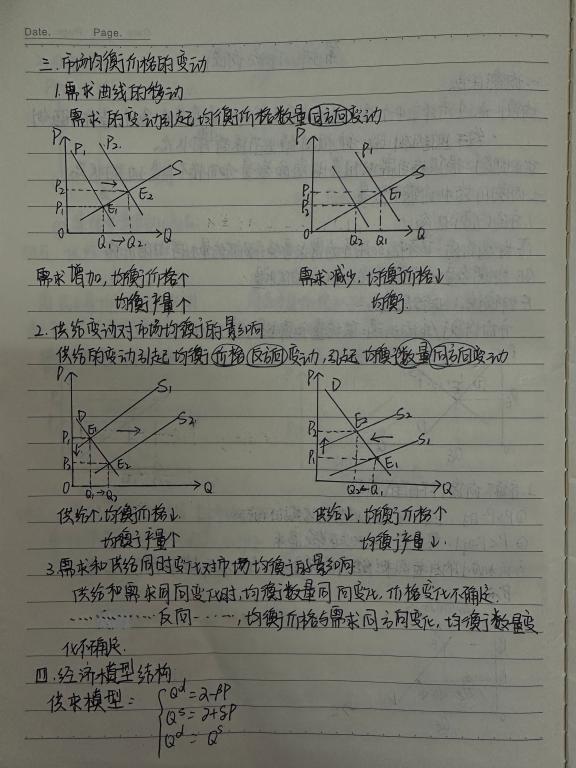 Date. Page.
三.市场均衡价格的变动
1.需求曲线的移动
需求的变动引起均衡价格数量同方向变动
P P₁ P₂ S P₂ P₁ E₂ E₁ O Q₁→Q₂ Q
P P₁ S P₁ P₂ E₁ E₂ O Q₂ Q₁ Q
需求增加,均衡价格↑ 需求减少,均衡价格↓
均衡产量↑ 均衡
2.供给变动对市场均衡的影响
供给的变动引起均衡价格反方向变动,引起均衡数量同方向变动
P D S₁ S₂ P₁ P₂ E₁ E₂ O Q₁→Q₂ Q
P D S₂ S₁ P₂ P₁ E₂ E₁ Q₂←Q₁ Q
供给↑,均衡价格↓ 供给↓,均衡价格↑
均衡产量↑ 均衡产量↓.
3.需求和供给同时变化对市场均衡的影响
供给和需求同向变化时,均衡数量同向变化,价格变化不确定.
反向 ,均衡价格与需求同方向变化,均衡数量变
化不确定.
四.经济模型结构
供求模型: Qᵈ=α-βP
Qˢ=
Qᵈ=Qˢ